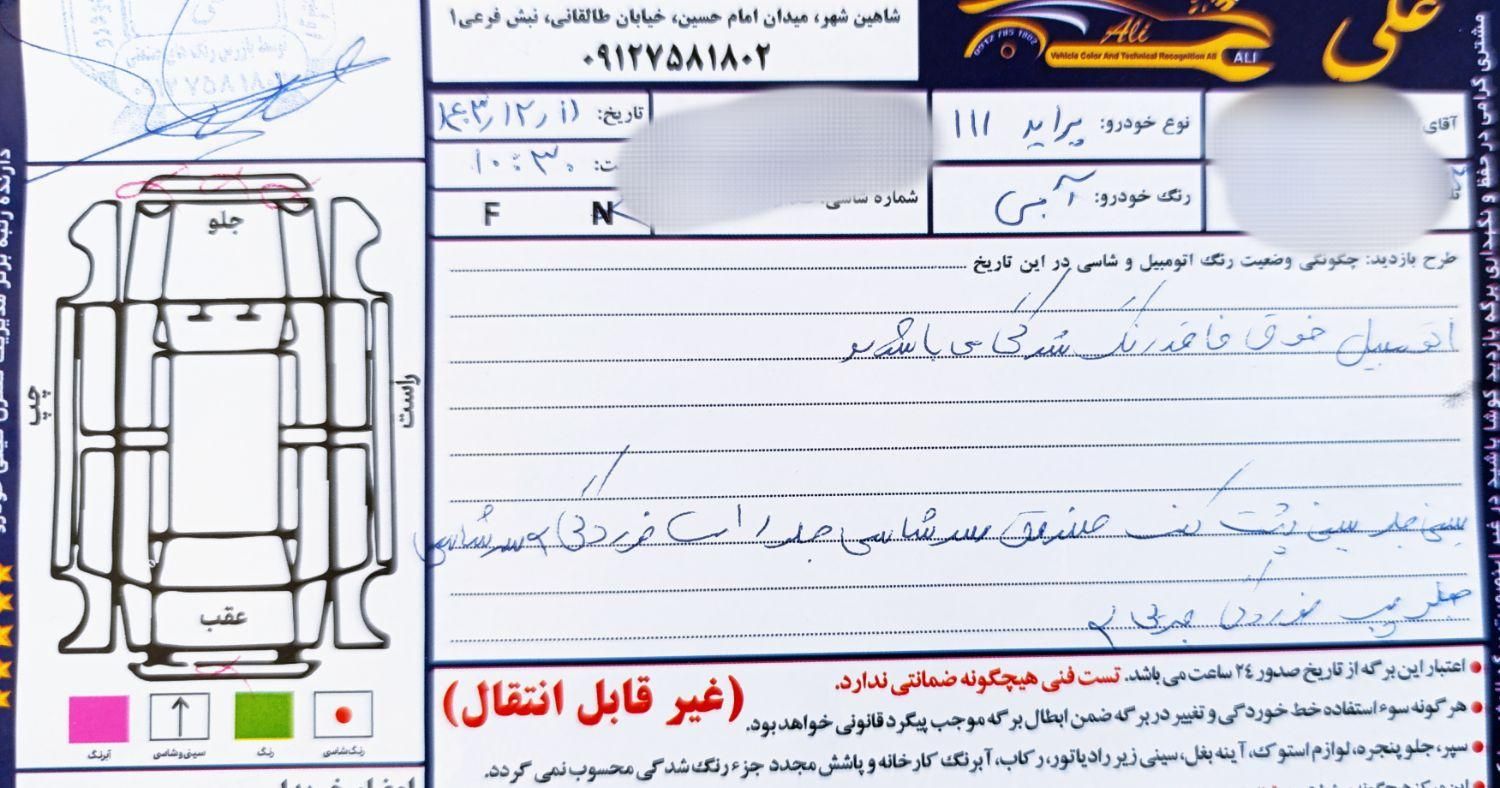 شاهین شهر، میدان امام حسین، خیابان طالقانی، نبش فرعی ۱
۰۹۱۲۷۵۸۱۸۰۲
علی
Ali
0912 785 1802
Vehicle Color And Technical Recognition Ali
ALI
توسط بازرس رنگ های صنعتی
آقای
نوع خودرو: پراید ۱۱۱
تاریخ: ۱۴۰۳/۱۲/۱۱
۱۰:۳۰
رنگ خودرو: آبی
شماره شاسی:
N F
طرح بازدید: چگونگی وضعیت رنگ اتومبیل و شاسی در این تاریخ
اتومبیل فوق فاقد رنگ شدگی می باشد
سینی جلو سینی پشت کف صندوق سرشاسی جلو راست خوردگی سرشاسی
جلو چپ خوردگی جزیی
جلو
چپ
راست
عقب
رنگ شاسی
رنگ
سینی و شاسی
آبرنگ
اعتبار این برگه از تاریخ صدور ۲۴ ساعت می باشد. تست فنی هیچگونه ضمانتی ندارد.
(غیر قابل انتقال)
هرگونه سوء استفاده خط خوردگی و تغییر در برگه ضمن ابطال برگه موجب پیگرد قانونی خواهد بود.
سپر، جلو پنجره، لوازم استوک، آینه بغل، سینی زیر رادیاتور، رکاب، آبرنگ کارخانه و پاشش مجدد جزء رنگ شدگی محسوب نمی گردد.
مشتری گرامی در حفظ و نگهداری برگه بازدید کوشا باشید در غیر